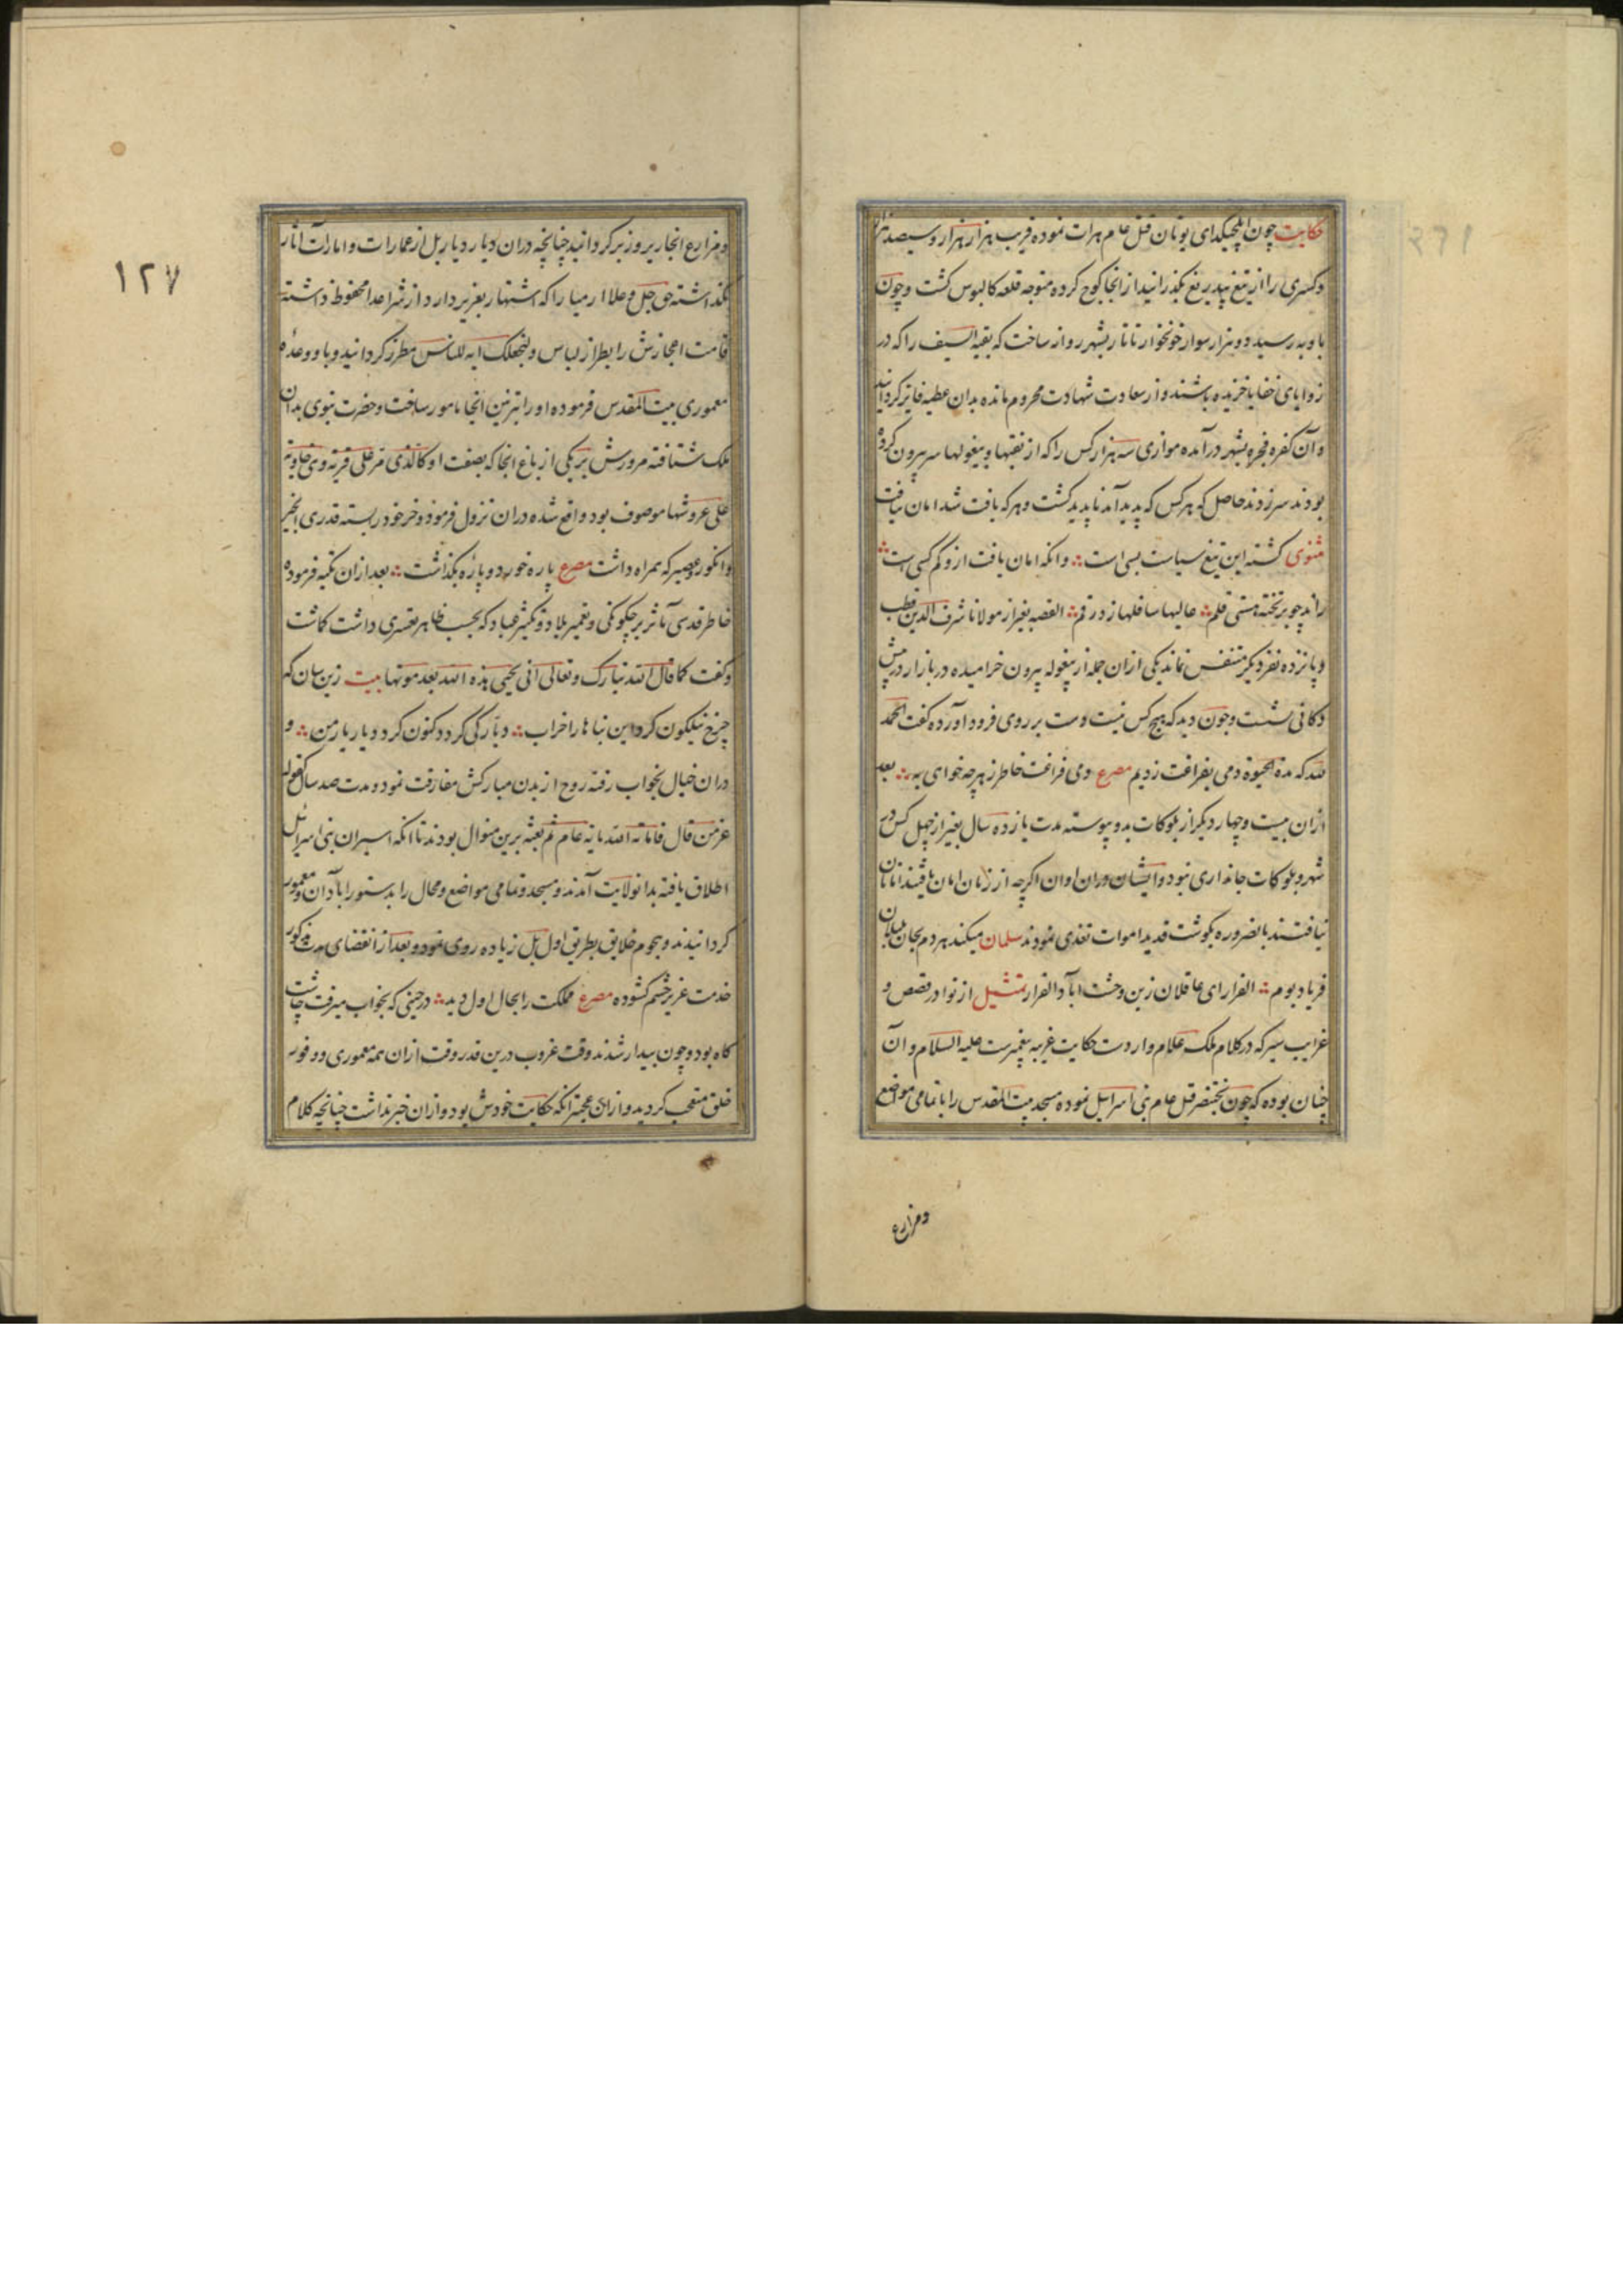 حکایت چون ایلچیکدای نویان قتل عام هرات نموده قریب هزار هزار و سیصد هزار
و کسری را از تیغ بیدریغ بگذرانید از انجا کوچ کرده متوجه قلعه کالیوس گشت و چون
باوبه رسید دو هزار سوار خونخوار تاتار بشهر روان ساخت که بقیه السیف را که در
زوایای خفایا خزیده باشند و از سعادت شهادت محروم مانده بدان عطیه فایز گردانید
و آن کفره فجره بشهر در آمده موازی سه هزار کس را که از نقبها و بیغولها سر بیرون کرده
بودند سر زدند حاصل که هر کس که پدید آمد ناپدید گشت و هر که یافت شد امان نیافت
مثنوی کشته این تیغ سیاست بسی است وانکه امان یافت ازو کم کسی است
راند چو بر تخته هستی قلم عالیها سافلها زد رقم القصه بغیر از مولانا شرف الدین خطیب
و پانزده نفر دیگر متنفس نماند یکی ازان جمله از بیغوله بیرون خرامیده در بازار در پیش
دکانی نشست و چون دید که هیچ کس نیست دست بر روی فرود آورده گفت الحمد
لله که مدة الحیوة دمی بفراغت زدیم مصرع دمی فراغت خاطر ز هر چه خواهی به بعد
ازان بیست و چهار دیگر از بلوکات بدو پیوسته مدت پانزده سال بغیر از چهل کس در
شهر و بلوکات جانداری نبود و ایشان دران اوان اگرچه از زمان امان یافتند اما نان
نیافتند بالضروره بگوشت قدید اموات تغذی نمودند سلمان میکند هر دم بجان
فریاد بوم الفرار ای عاقلان زین وحشت آباد الفرار تمثیل از نوادر قصص و
غرایب سیر که در کلام ملک علام واردست حکایت عزیر پیغمبرست علیه السلام و آن
چنان بوده که چون بختنصر قتل عام بنی اسرائیل نموده مسجد بیت المقدس را با تمامی مواضع
و مزارع
١٢٧
و مزارع انجا زیر و زبر گردانید چنانچه دران دیار دیار بل از عمارات و امارات آثار
نگذاشته حق جل و علا ارمیا را که اشتهار بعزیر دارد از شر اعدا محفوظ داشته
قامت اعجازش را بطراز لباس ولنجعلک ایه للناس مطرز گردانید و باو وعده
معموری بیت المقدس فرموده او را بتزیین انجا مامور ساخت و حضرت نبوی بدان
ملک شتافته مرورش بر یکی از باغ انجا که بصفت او کالذی مر علی قریه وهی خاویه
علی عروشها موصوف بود واقع شده دران نزول فرمود و خر خود بر بسته قدری انجیر
و انگور و عصیر که همراه داشت مصرع پاره خورد و پاره بگذاشت بعد ازان تکیه فرموده
خاطر قدسی مآثر بر چگونگی و تعمیر بلاد و تکثیر عباد که بحسب ظاهر تعسری داشت گماشت
و گفت کما قال الله تبارک و تعالی انی یحیی هذه الله بعد موتها بیت زین سان که
چرخ نیلگون کرد این بناها را خراب دیار کی گردد کنون گرد دیار یار من و
دران خیال بخواب رفته روح از بدن مبارکش مفارقت نمود و مدت صد سال کقوله
عز من قال فاماته الله مایه عام ثم بعثه برین منوال بودند تا انکه اسیران بنی اسرائیل
اطلاق یافته بدان ولایت آمدند و مسجد و تمامی مواضع و محال را بدستور آبادان و معمور
گردانیدند و هجوم خلایق بطریق اول بل زیاده روی نمود و بعد از انقضای مدت مذکور
خدمت عزیر چشم گشوده مصرع مملکت را بحال اول دید در حینی که بخواب میرفت چاشت
گاه بود و چون بیدار شدند وقت غروب درین قدر وقت ازان همه معموری و وفور
خلق متعجب گردید و ازان عجبتر انکه حکایت خودش بود و ازان خبر نداشت چنانچه کلام